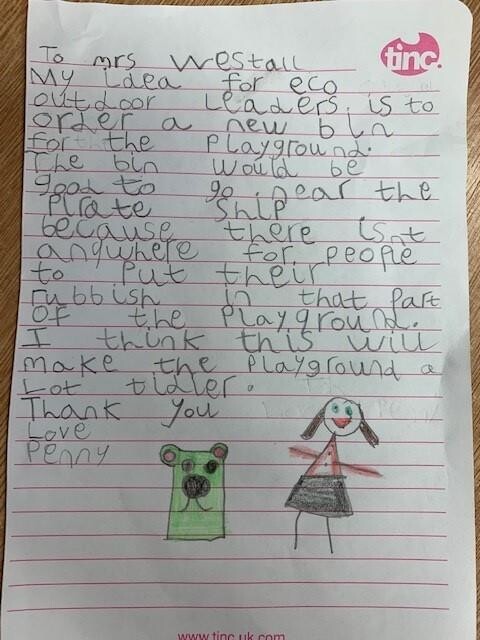 tinc.
To mrs Westall
My idea for eco
outdoor Leaders is to
order a new bin
for the Playground.
The bin would be
good to go near the
Pirate Ship
because there isnt
anywhere for people
to Put their
rubbish in that Part
of the Playground.
I think this will
make the Playground a
Lot tidier.
Thank you
Love
Penny
www.tinc.uk.com